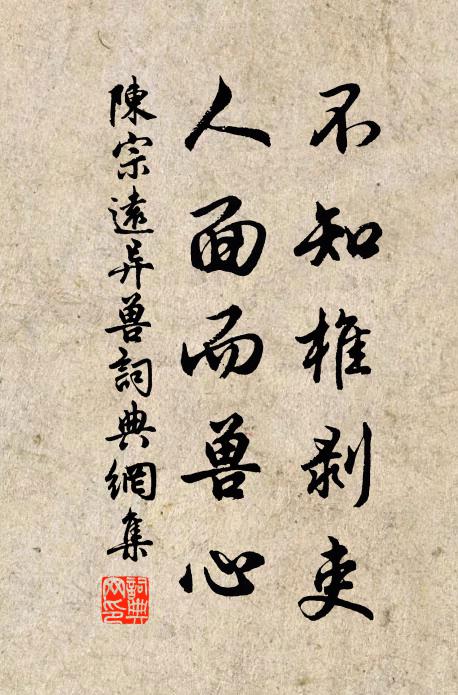 不知椎剥吏
人面而兽心
陳宗遠异兽詞典網集
詞典
网印